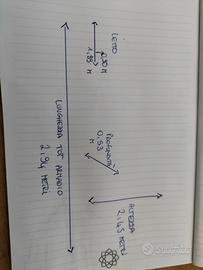 LETTO
0,90 M
1,95 M
PROFONDITÀ
0,53
M
ALTEZZA
2,43 METRI
LUNGHEZZA TOT ARMADIO
2,94 METRI
subito